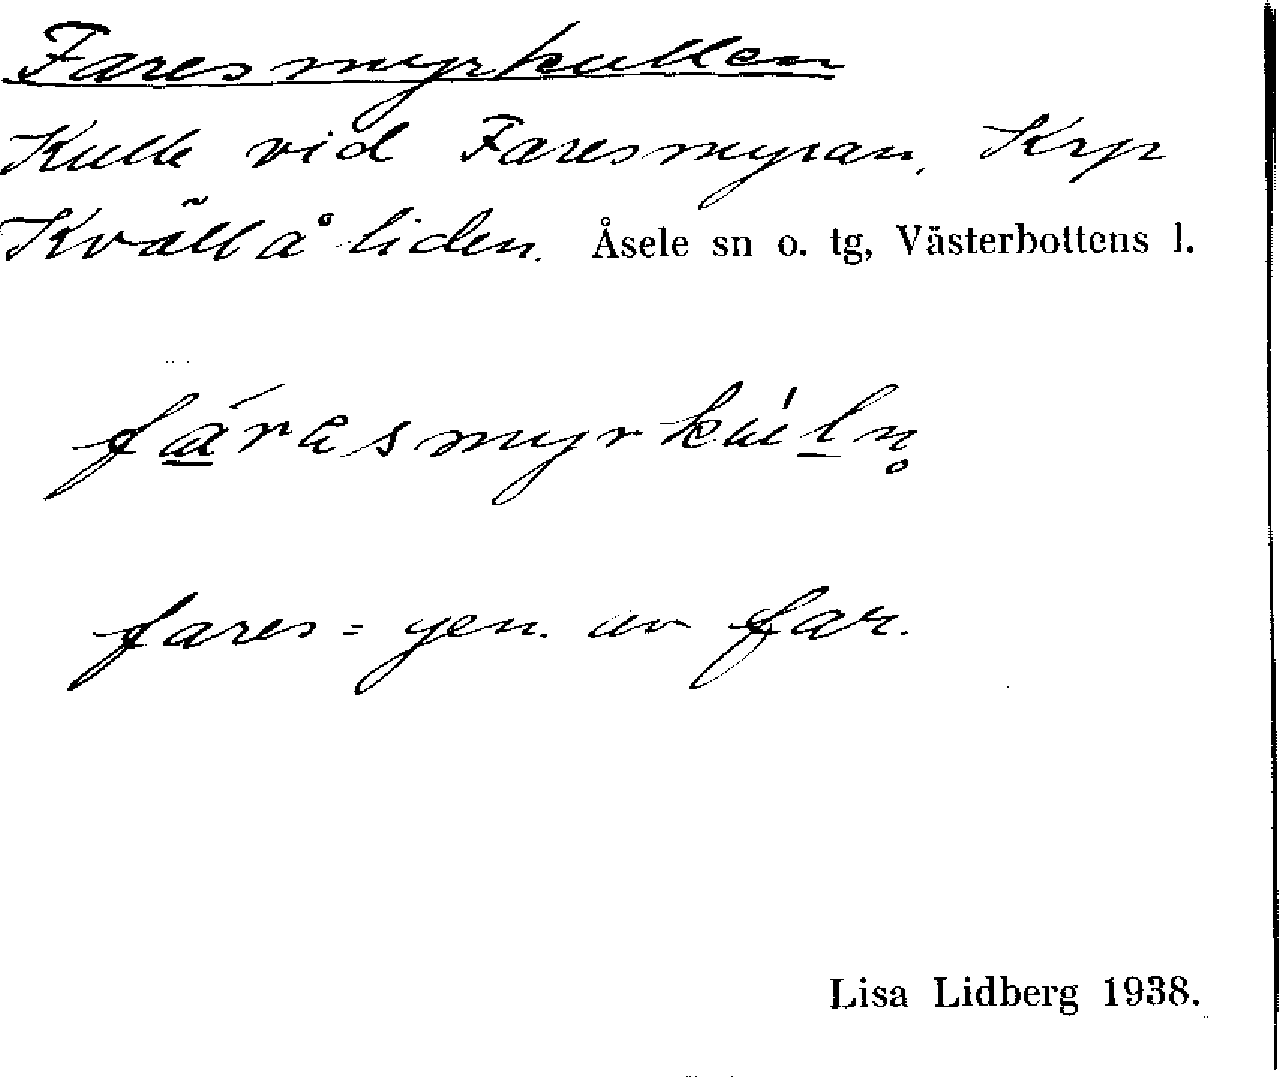 Faresmyrkullen
Kulle vid Faresmyran, Krp
Kvällåliden. Åsele sn o. tg, Västerbottens l.
fáresmyrkùln̥
fares = gen. av far.
Lisa Lidberg 1938.